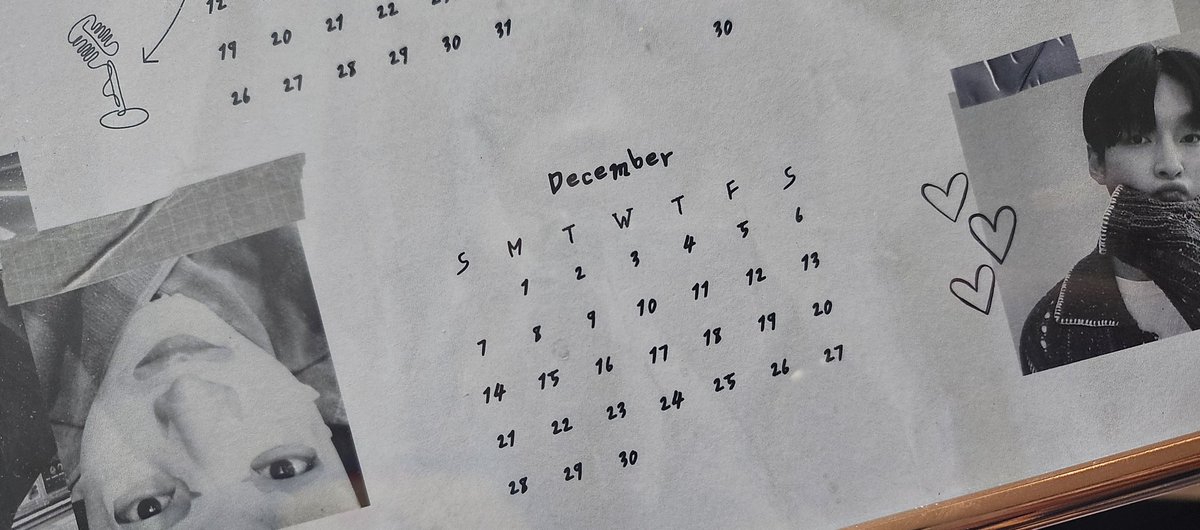 12
19 20 21 22
26 27 28 29 30 31
30
December
S M T W T F S
1 2 3 4 5 6
7 8 9 10 11 12 13
14 15 16 17 18 19 20
21 22 23 24 25 26 27
28 29 30